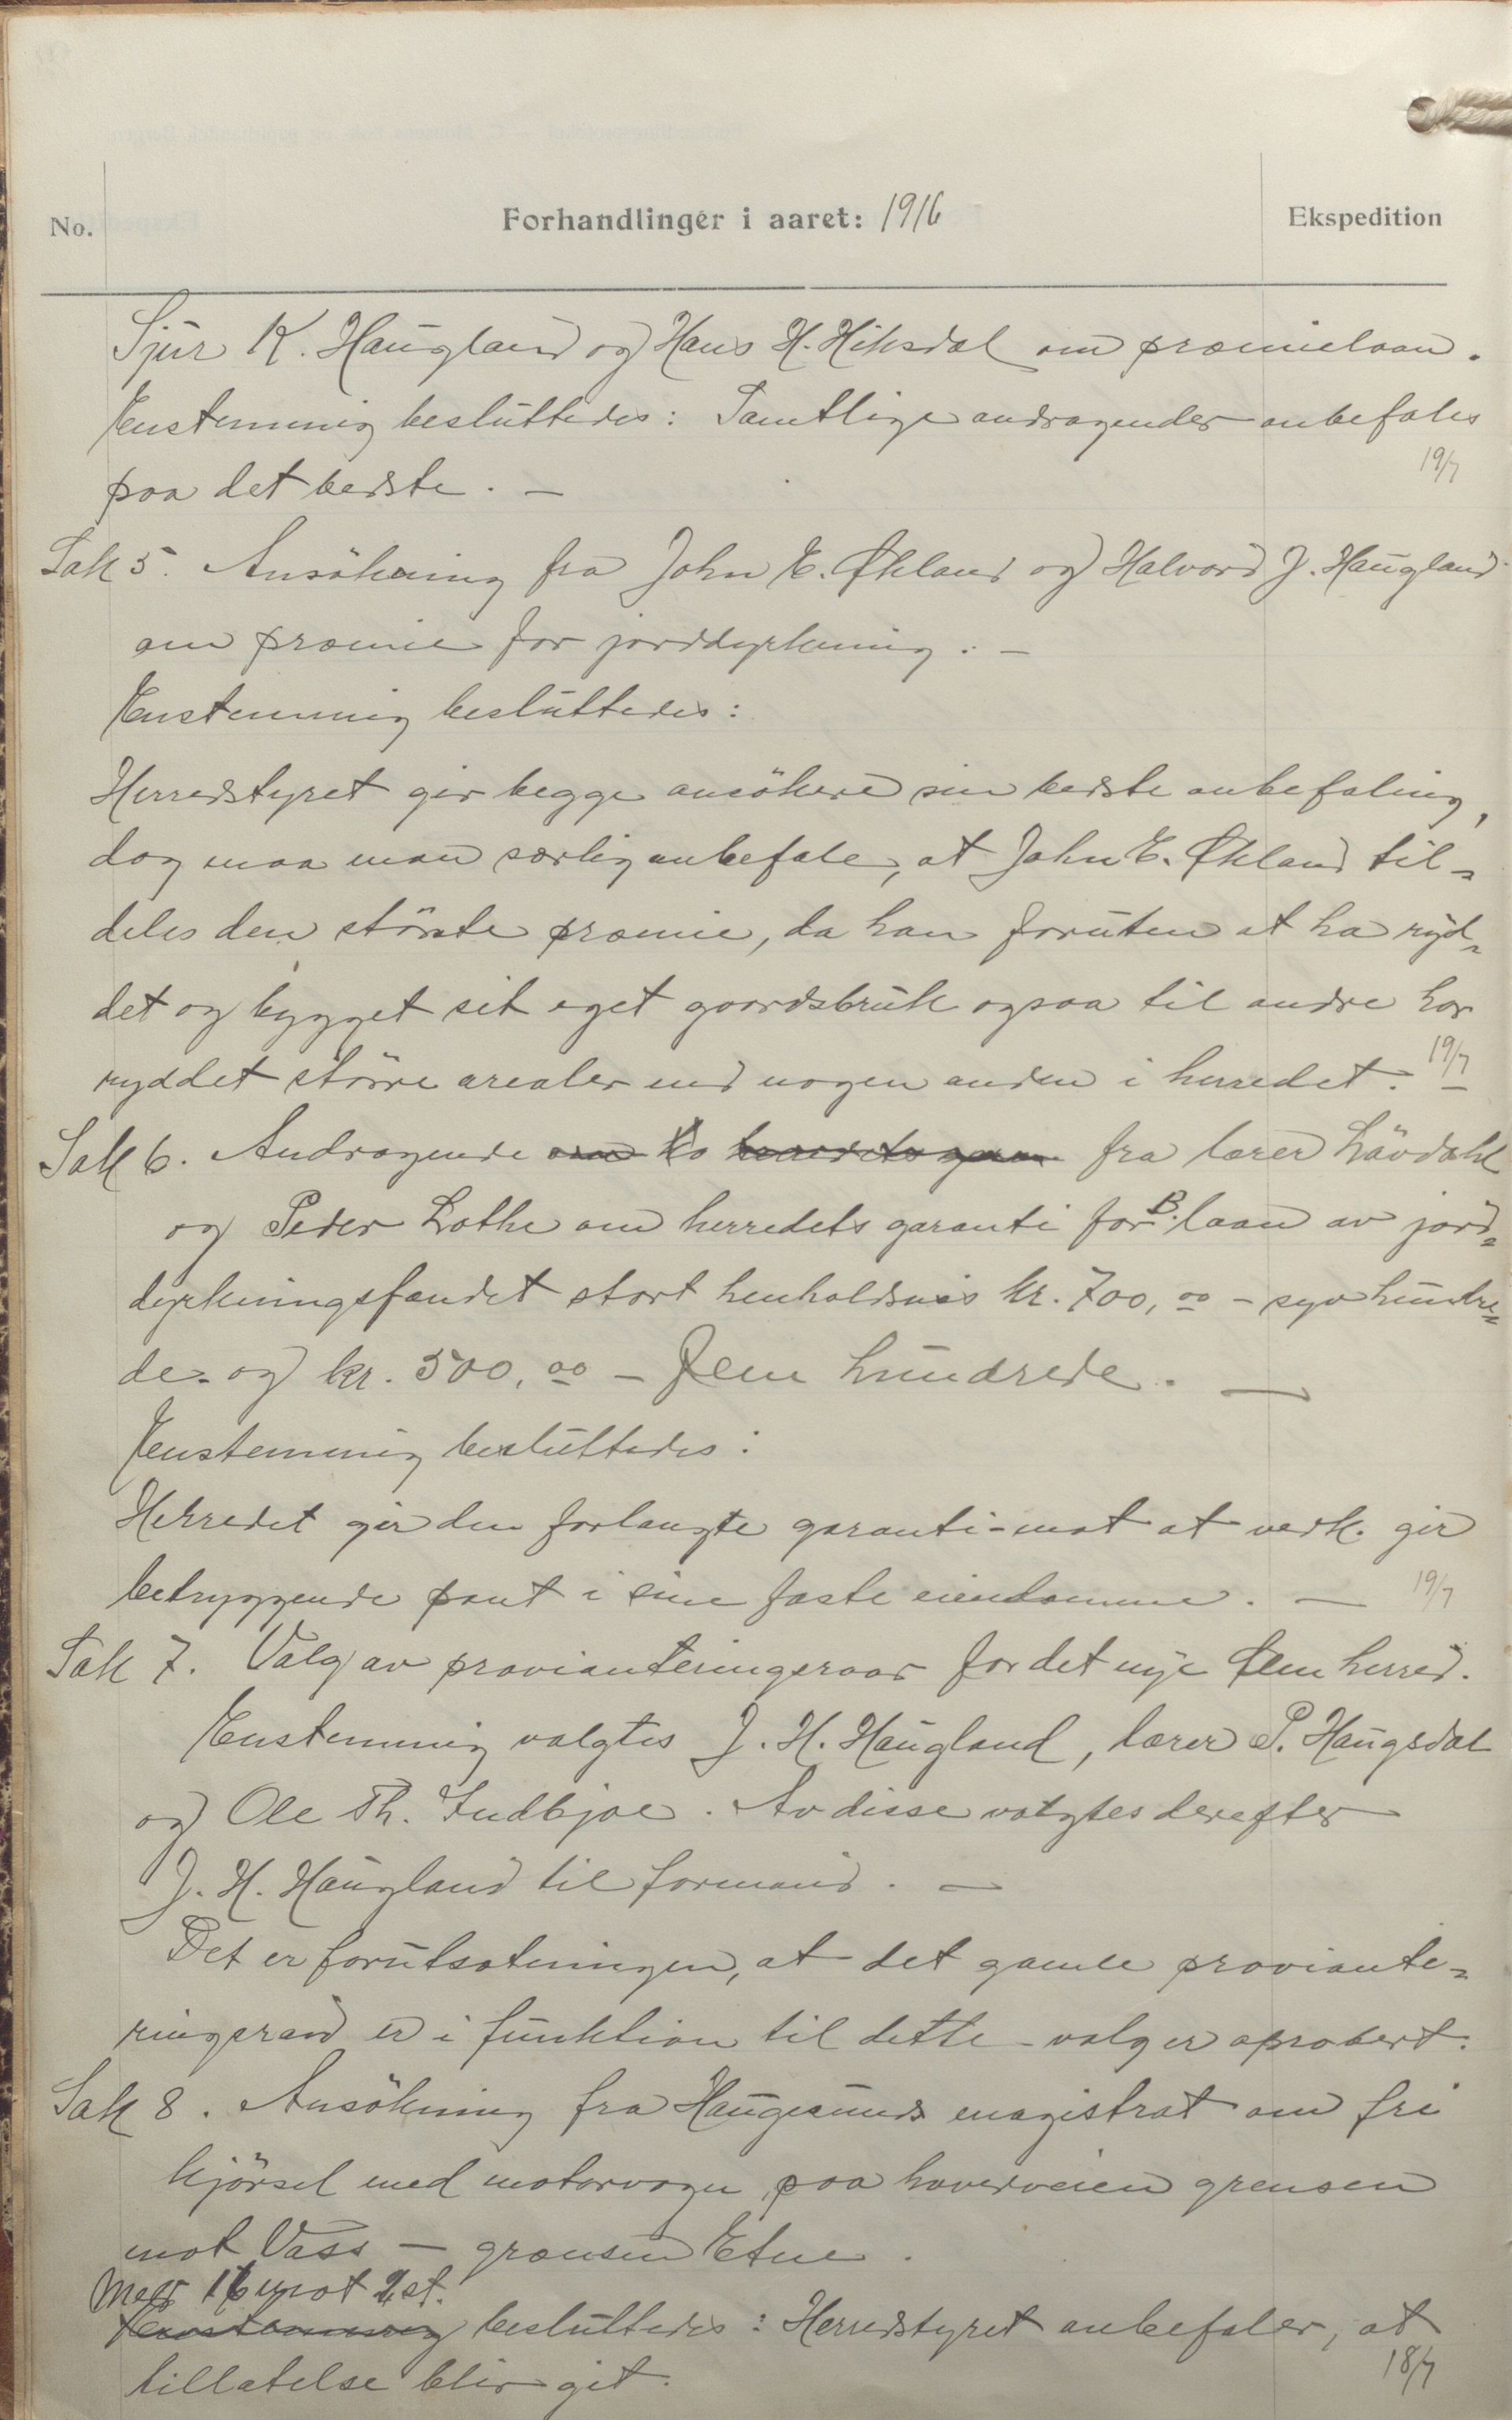 No. Forhandlinger i aaret: 1916 Ekspedition
Sjur K. Haugland og Hans H. Hiksdal om præmielaan.
Enstemmig besluttedes: Samtlige andragender anbefales
paa det bedste. —
19/7
Sak 5. Ansökning fra John E. Økland og Halvord J. Haugland
om præmie for jorddyrkning. —
Enstemmig besluttedes:
Herredstyret gir begge ansökere sin bedste anbefaling,
dog maa man særlig anbefale, at John E. Økland til-
deles den störste præmie, da han foruten at ha ryd-
det og bygget sit eget gaardsbruk ogsaa til andre har
ryddet större arealer end nogen anden i herredet. —
19/7
Sak 6. Andragende fra lærer Lövdahl
og Peder Lothe om herredets garanti for B. laan av jord-
dyrkningsfondet stort henholdsvis kr. 700,00 - syv hundre-
de- og kr. 500,00 - fem hundrede. —
Enstemmig besluttedes:
Herredet gir den forlangte garanti - mot at vedk. gir
betryggende pant i sine faste eiendomme. —
19/7
Sak 7. Valg av provianteringsraad for det nye Ølen herred.
Enstemmig valgtes J. H. Haugland, lærer P. Haugsdal
og Ole Th. Indbjoe. Av disse valgtes derefter
J. H. Haugland til formand. —
Det er forutsætningen, at det gamle proviante-
ringsraad er i funktion til dette valg er aprobert.
Sak 8. Ansökning fra Haugesunds magistrat om fri
kjörsel med motorvogn paa hovedveien grensen
mot Vats — grænsen Etne.
Med 16 mot 2 st.
Enstemmig besluttedes: Herredstyret anbefaler, at
tillatelse blir git.
18/7